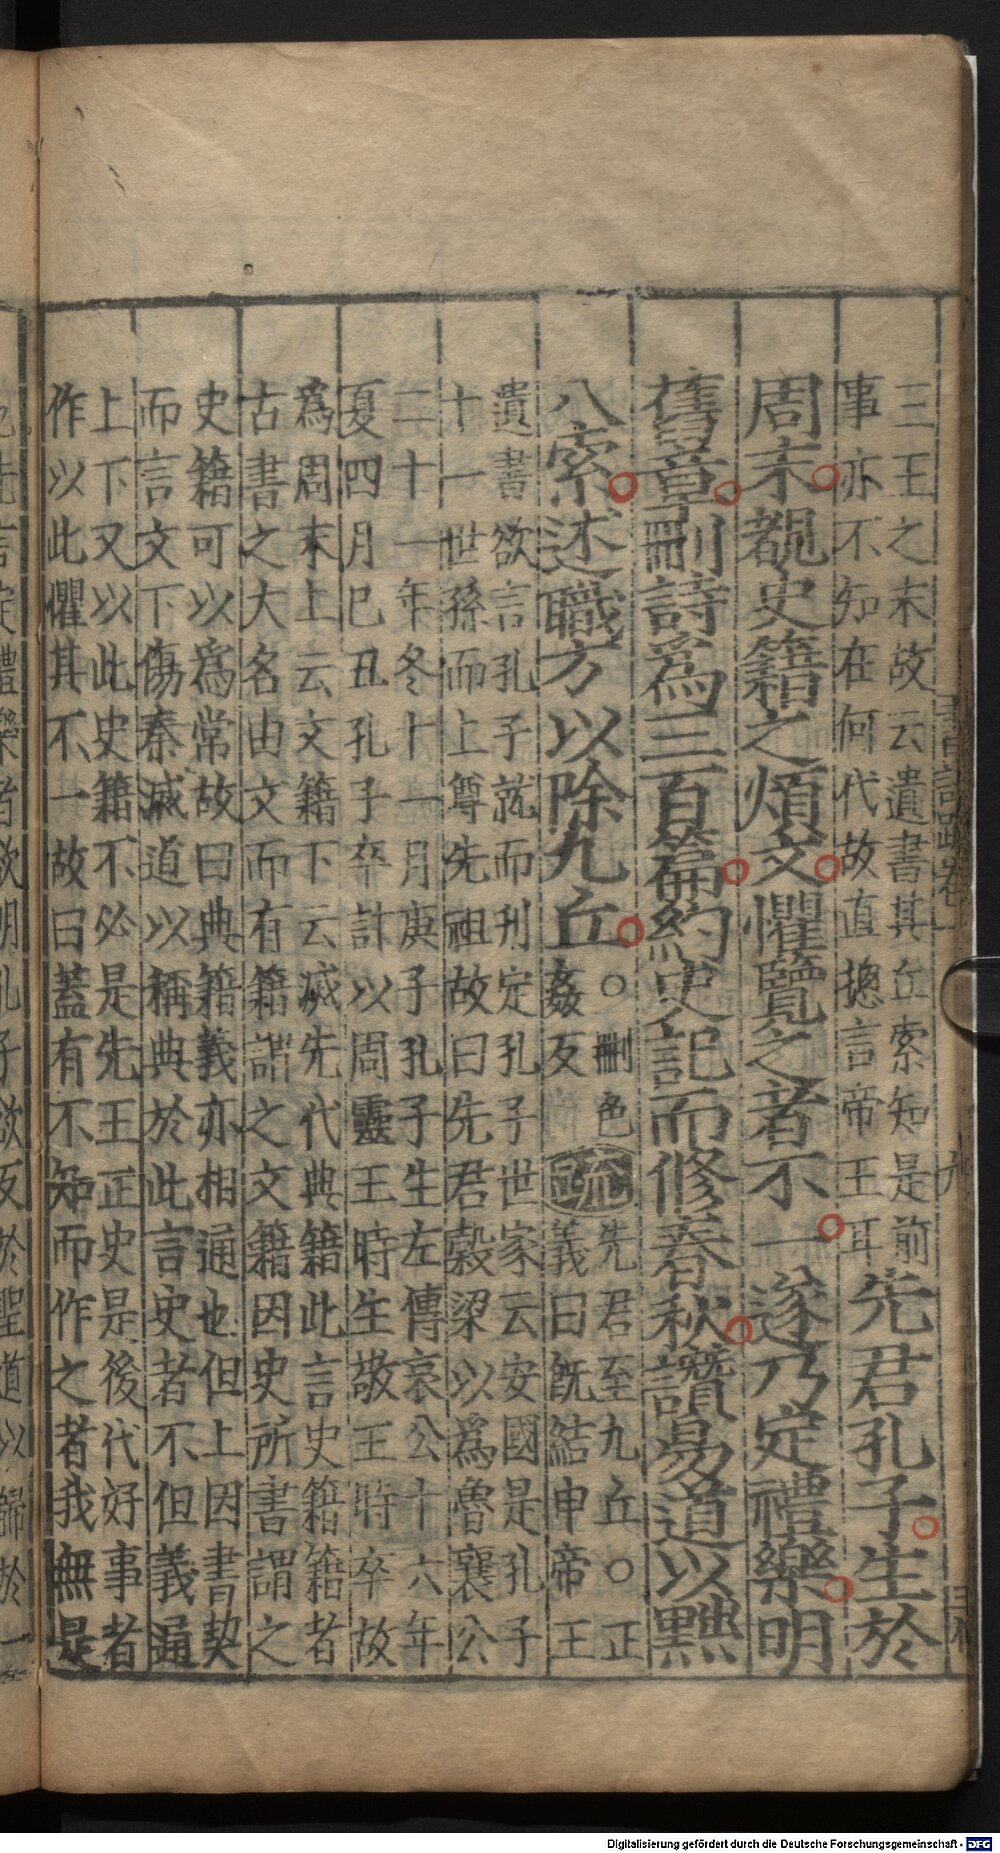 三王之末故云遺書其丘索知是前
事亦不知在何代故直揔言帝王耳
先君孔子生於
周末覩史籍之煩文懼覽之者不一遂乃定禮樂明
舊章刪詩爲三百篇約史記而修春秋讚易道以黜
八索述職方以除九丘
○刪色
姦反
疏
先君至九丘○正
義曰既結申帝王
遺書欲言孔子就而刋定孔子世家云安國是孔子
十一世孫而上尊先祖故曰先君榖梁以爲魯襄公
二十一年冬十一月庚子孔子生左傳哀公十六年
夏四月巳丑孔子卒計以周靈王時生敬王時卒故
爲周末上云文籍下云滅先代典籍此言史籍籍者
古書之大名由文而有籍謂之文籍因史所書謂之
史籍可以爲常故曰典籍義亦相通也但上因書契
而言文下傷秦滅道以稱典於此言史者不但義通
上下又以此史籍不必是先王正史是後代好事者
作以此懼其不一故曰蓋有不知而作之者我無是
Digitalisierung gefördert durch die Deutsche Forschungsgemeinschaft - DFG